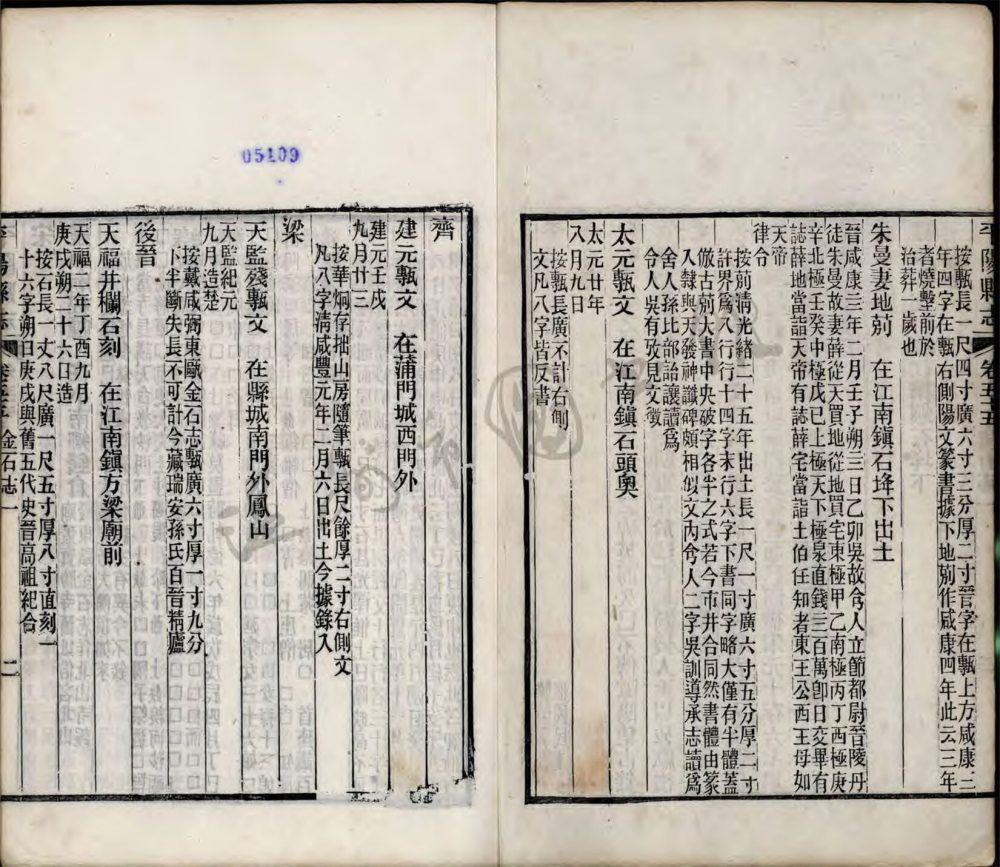 平陽縣志 卷五十五
按甎長一尺四寸廣六寸三分厚二寸晉字在甎上方咸康三
年四字在甎右側陽文篆書據下地莂作咸康四年此云三年
者燒墼前於
治葬一歲也
朱曼妻地莂 在江南鎮石垟下出土
晉咸康三年二月壬子朔三日乙卯吳故舍人立節都尉晉陵丹
徒朱曼故妻薛從天買地從地買宅東極甲乙南極丙丁西極庚
辛北極壬癸中極戊已上極天下極泉直錢三百萬卽日交畢有
誌薛地當詣天帝有誌薛宅當詣土伯任知者東王公西王母如
天帝
律令
按莂清光緒二十五年出土長一尺一寸廣六寸五分厚二寸
許界爲八行行十四字末行六字下書同字略大僅有半體蓋
倣古莂大書中央破字各半之式若今市井合同然書體由篆
入隸與天發神讖碑頗相似文內舍人二字吳訓導承志讀爲
舍人孫比部詒讓讀爲
令人吳有攷見文徵
太元甎文 在江南鎮石頭輿
太元廿年
八月九日
按甎長廣不計右側
文凡八字皆反書
齊
建元甎文 在蒲門城西門外
建元壬戌
九月廿三
按華炯存拙山房隨筆甎長尺餘厚二寸右側文
凡八字清咸豐元年二月六日出土今據錄入
梁
天監殘甎文 在縣城南門外鳳山
天監紀元
九月造楚
按戴咸弼東甌金石志甎廣六寸厚一寸九分
下半斷失長不可計今藏瑞安孫氏百晉精廬
後晉
天福井欄石刻 在江南鎮方梁廟前
天福二年丁酉九月
庚戌朔二十六日造
按石長一丈八尺廣一尺五寸厚八寸直刻一
十六字朔日庚戌與舊五代史晉高祖紀合
卷五十五 金石志一 二
05109